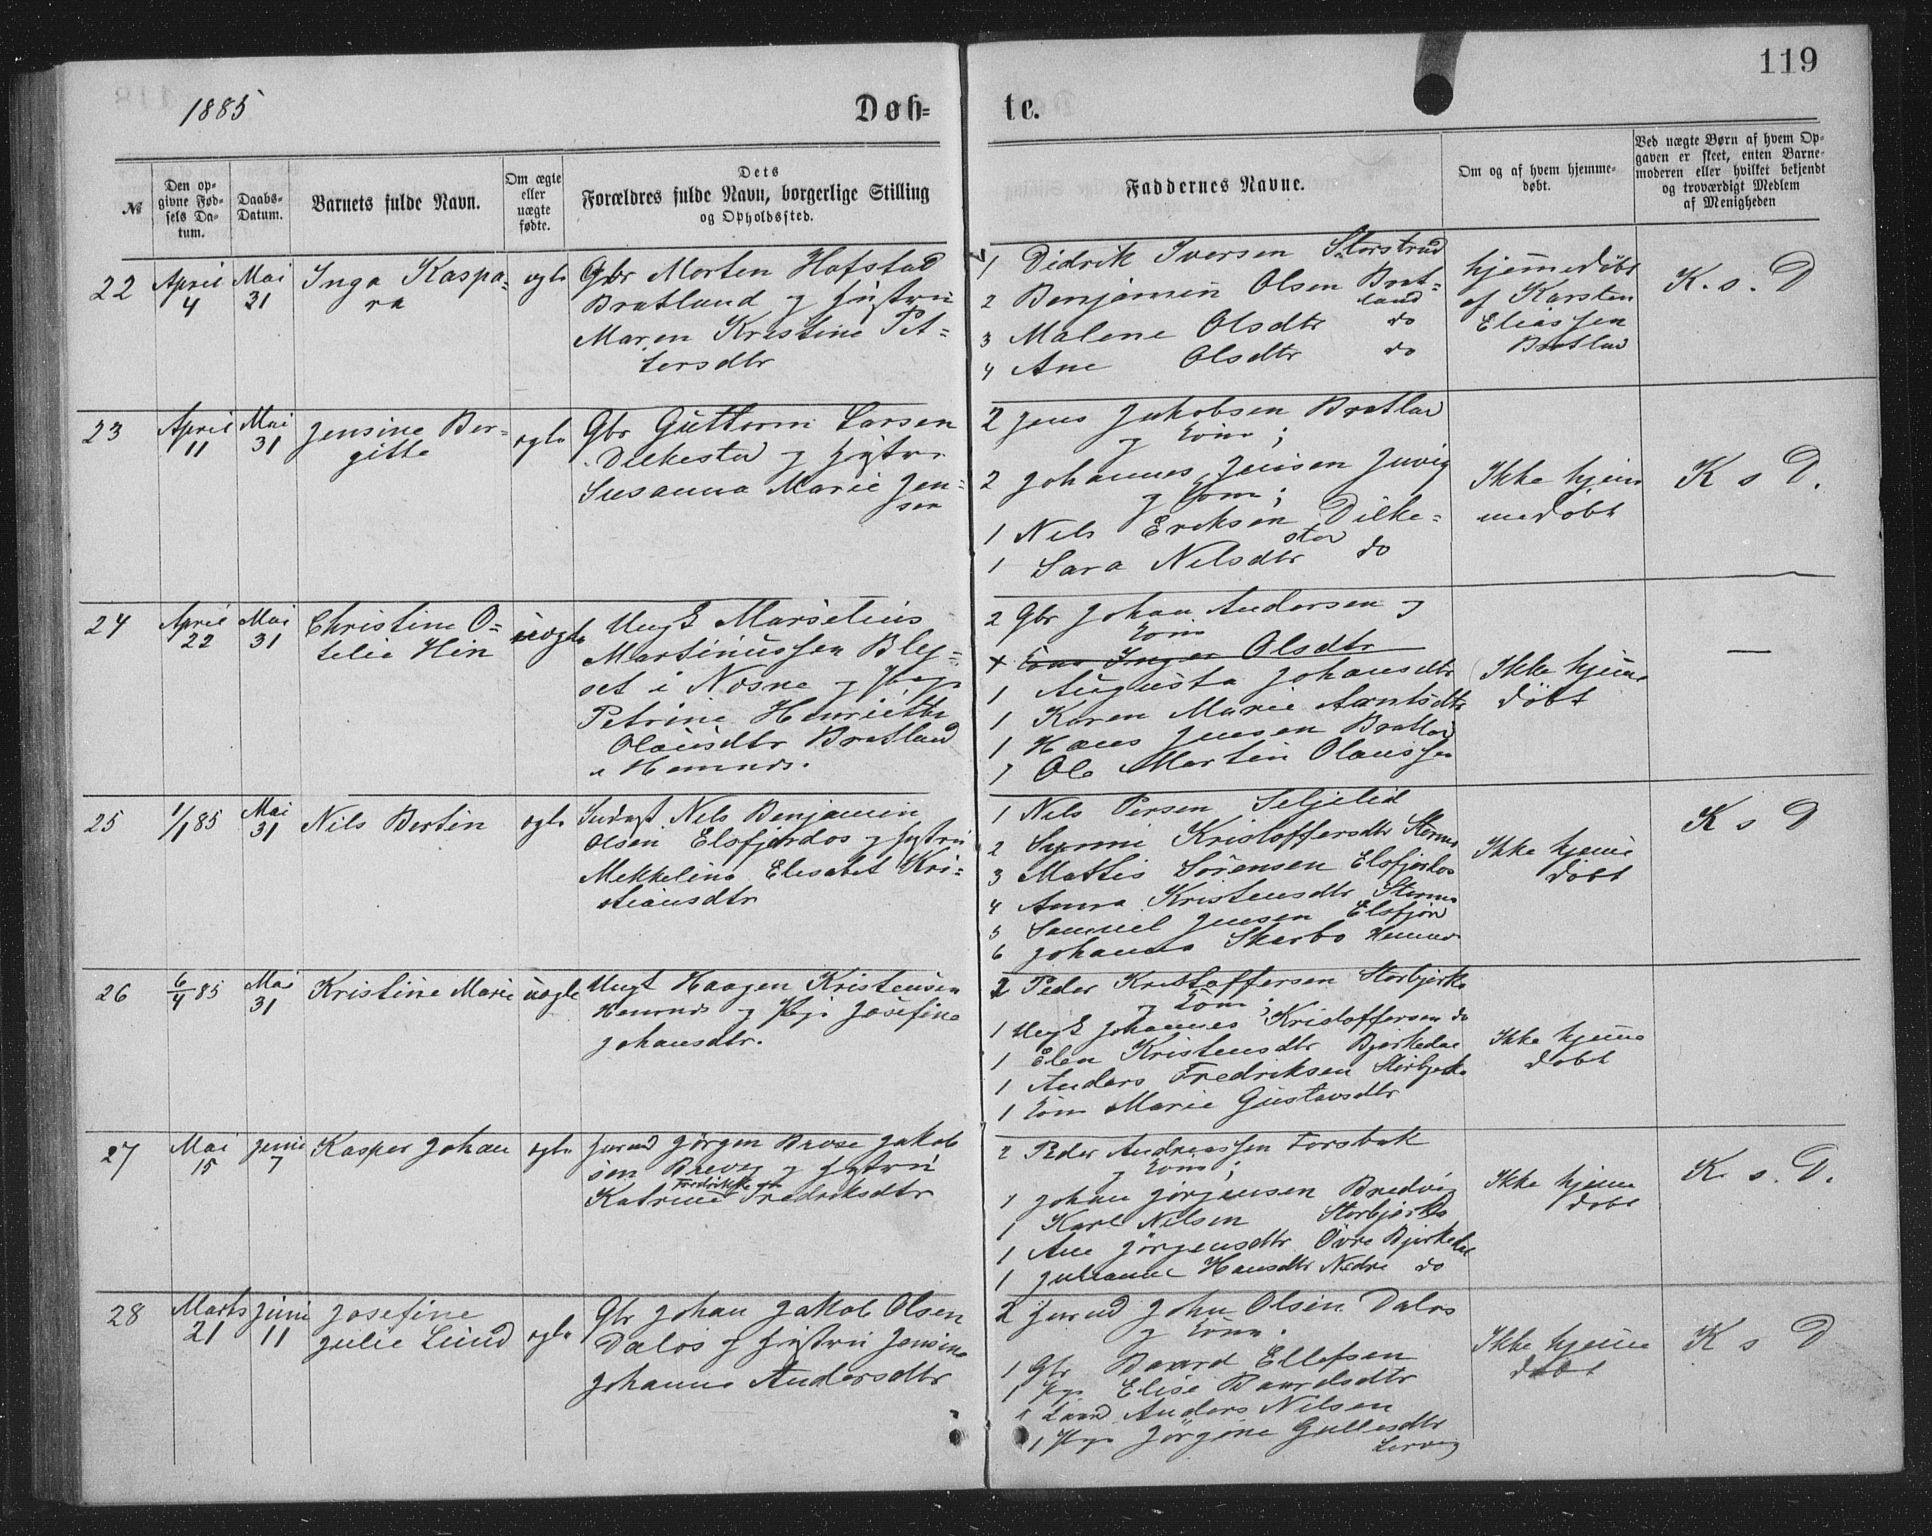 119
1885
Døb-
te.
№
Den op-
givne Fød-
sels Da-
tum.
Daabs-
Datum.
Barnets fulde Navn.
Om ægte
eller
uægte
fødte.
Dets
Forældres fulde Navn, borgerlige Stilling
og Opholdssted.
Faddernes Navne.
Om og af hvem hjemme-
døbt.
Ved uægte Børn af hvem Op-
gaven er skeet, enten Barne-
moderen eller hvilket bekjendt
og troværdigt Medlem
af Menigheden
22
April
4
Mai
31
Inga Kaspa-
ra
egte
Gbr Morten Hofstad
Bratland og Hustru
Maren Kristine Pet-
tersdtr
1 Didrik Iversen Storstrud
2 Benjamin Olsen Brat-
land
3 Malene Olsdtr do
4 Ane Olsdtr do
hjemmedøbt
af Karsten
Eliassen
Bratland
K. s. D
23
April
11
Mai
31
Jensine Ber-
gitte
egte
Gbr Guttorm Larsen
Dilkestad og Hustru
Susanna Marie Jen-
sen
2 Jens Jakobsen Bratland
og Kone;
2 Johannes Jensen Juvig
og Kone;
1 Nils Eriksen Dilke-
stad
1 Sara Nilsdtr do
Ikke hjem
medøbt
K s D.
24
April
22
Mai
31
Christine O-
telie Hin
uegte
Ungk Marselius
Martinussen Bley-
set i Næsne og Pige
Petrine Henriette
Olausdtr Bratland
i Hemnæs.
2 Gbr Johan Andersen og
Kone
Kone Inger Olsdtr
1 Augusta Johansdtr
1 Karen Marie Arntsdtr
1 Hans Jensen Bratland
1 Ole Martin Olaussen
Ikke hjemme
døbt
—
25
1/1 85
Mai
31
Nils Bertin
egte
Inds Nils Benjamin
Olsen Elsfjordos og Hustru
Mekkeline Elisabet Kri-
stiansdtr
1 Nils Persen Seljelid
2 Kristoffersdtr
3 Mattis Sørensen Elsfjordos
4 Anna Kristensdtr
5 Samuel Jensen Elsfjord
6 Johanna Skarbo Hemnæs
Ikke hjemme
døbt
K s D
26
6/4 85
Mai
31
Kristine Marie
uegte
Ungk Haagen Kristensen
Hemnæs og Pige Josefine
Johansdtr.
2 Peder Kristoffersen Storbjerka
og Kone;
1 Ungk Johannes Kristoffersen do
1 Elen Kristensdtr Bjerkedal
1 Anders Fredriksen Storbjerka
1 Kone Marie Gustavsdtr
Ikke hjemme
døbt
27
Mai
15
Juni
7
Kasper Johan
egte
Jørgen Jakob
sen og Hustru
Katrine Fredriksdtr
2 Peder Andreassen Forsbak
og Kone;
1 Johan Jørgensen Bredvig
1 Karl Nilsen Storbjerka
1 Ane Jørgensdtr Øvre Bjerkedal
1 Julianne Hansdtr Nedre do
Ikke hjemme
døbt
K. s. D.
28
Marts
21
Juni
11
Josefine
Julie Lund
egte
Gbr Johan Jakob Olsen
Dalos og Hustru Jensine
Johanne Andersdtr
2 John Olsen Dalos
og Kone.
1 Gbr Baard Ellefsen
1 Pige Elise Baardsdtr
1 Anders Nilsen
1 Pige Jørgine Gullesdtr
Ikke hjemme
døbt
K s D